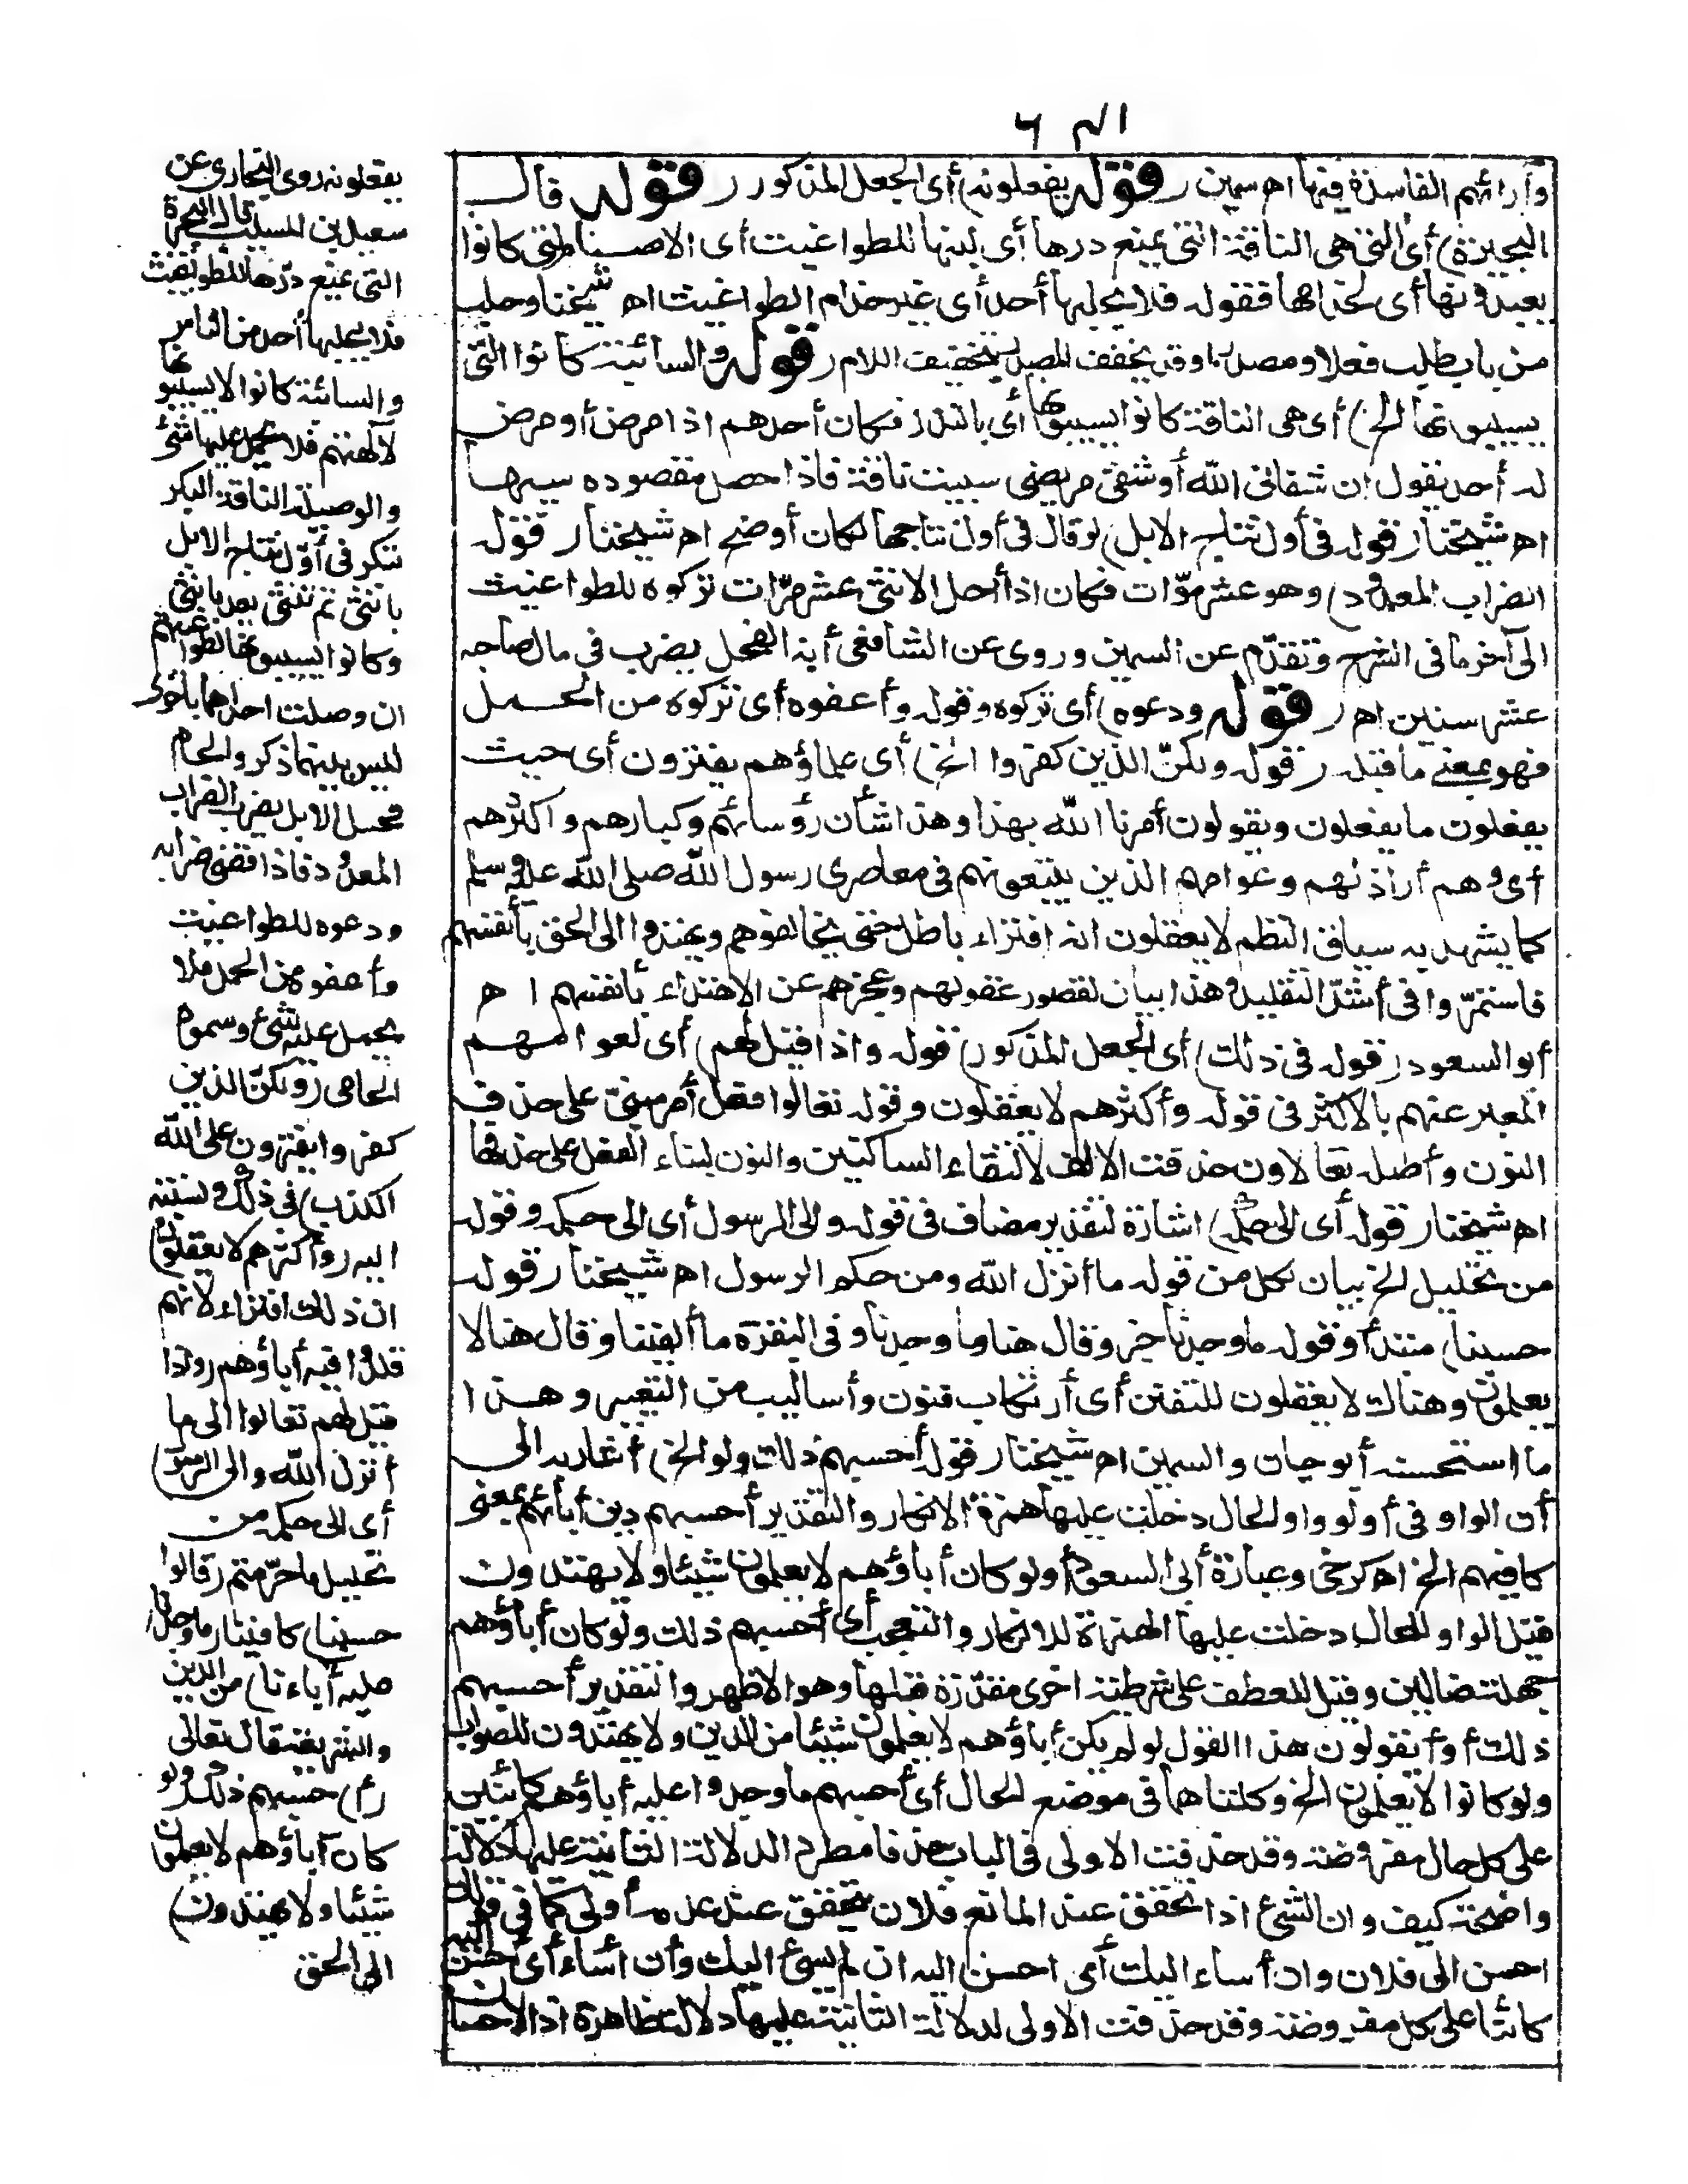 وآرائهم الفاسدة فيها اه سمين (قوله يفعلونه) أى الجعل المذكور (قوله قال
البحيرة) أى التى هى الناقة التى يمنع درها أى لبنها للطواغيت أى الاصنام التى كانوا
يعبدونها أى لخدامها فقوله فلا يحلبها أحد أى غير خدام الطواغيت اه شيخنا وحلب
من باب طلب فعلا ومصدرا وقد يخفف المصدر بتخفيف اللام (قوله والسائبة كانوا التى
يسيبونها الخ) أى هى الناقة كانوا يسيبونها أى بالنذر فكان أحدهم اذا مرض أو مرض
له أحد يقول ان شفانى الله أو شفى مريضى سيبت ناقة فاذا حصل مقصوده سيبها
اه شيخنا (قوله فى أول نتاج الابل) لو قال فى أول نتاجها لكان أوضح اه شيخنا (قوله
الضراب المعدود) وهو عشر مرّات فكان اذا أحبل الانثى عشر مرّات تركوه للطواغيت
الى آخر ما فى الشرح وتقدّم عن السمين وروى عن الشافعى أنه الفحل يضرب فى مال صاحبه
عشر سنين اه (قوله ودعوه) أى تركوه وقوله وأعفوه أى تركوه من الحمل
فهو بمعنى ما قبله (قوله ولكنّ الذين كفروا الخ) أى علماؤهم يفترون أى حيث
يفعلون ما يفعلون ويقولون أمرنا الله بهذا وهذا شأن رؤسائهم وكبارهم وأكثرهم
أى وهم أراذلهم وعوامهم الذين يتبعونهم فى معاصرى رسول الله صلى الله عليه وسلم
كما يشهد به سياق النظم لا يعقلون انه افتراء باطل حتى يخالفوهم ويهتدوا الى الحق بأنفسهم
فاستمرّوا فى أشدّ التقليد وهذا بيان لقصور عقولهم وعجزهم عن الاهتداء بأنفسهم اه
أبو السعود (قوله فى ذلك) أى الجعل المذكور (قوله واذا قيل لهم) أى لعوامهم
المعبر عنهم بالاكثر فى قوله وأكثرهم لا يعقلون وقوله تعالوا فعل أمر مبنىّ على حذف
النون وأصله تعالاون حذفت الالف لالتقاء الساكنين والنون لبناء الفعل على حذفها
اه شيخنا (قوله أى الى حكمه) اشارة لتقدير مضاف فى قوله والى الرسول أى الى حكمه وقوله
من تحليل الخ بيان لكل من قوله ما أنزل الله ومن حكم الرسول اه شيخنا (قوله
حسبنا) مبتدأ وقوله ما وجدنا خبر وقال هنا ما وجدنا وفى البقرة ما ألفينا وقال هنا لا
يعلمون وهناك لا يعقلون للتفنن أى ارتكاب فنون وأساليب من التعبير وهذا
ما استحسنه أبو حيان والسمين اه شيخنا (قوله أحسبهم ذلك ولو الخ) أشار به الى
أن الواو فى أولو واو الحال دخلت عليها همزة الانكار والتقدير أحسبهم دين آبائهم بمعنى
كافيهم الخ اه كرخى وعبارة أبى السعود أولو كان أباؤهم لا يعلمون شيئا ولا يهتدون
قيل الواو للحال دخلت عليها الهمزة للانكار والتعجب أى أحسبهم ذلك ولو كان أباؤهم
جهلة ضالين وقيل للعطف على شرطية اخرى مقدّرة قبلها وهو الاظهر والتقدير أحسبهم
ذلك أو أيقولون هذا القول لو لم يكن أباؤهم لا يعلمون شيئا من الدين ولا يهتدون للصواب
ولو كانوا لا يعلمون الخ وكلتاهما فى موضع الحال أى أحسبهم ما وجدوا عليه أباؤهم كائنين
على كل حال مفروضة وقد حذفت الاولى فى الباب حذفا مطردا لدلالة الثانية عليها دلالة
واضحة كيف وان الشئ اذا تحقق عند المانع فلان يتحقق عند عدمه أولى كما فى قولك
احسن الى فلان وان أساء اليك أى احسن اليه ان لم يسئ اليك وان أساء أى احسن اليه
كائنا على كل مفروضة وقد حذفت الاولى لدلالة الثانية عليها دلالة ظاهرة اذ الاحسان
يفعلونه روى البخارى عن
سعيد بن المسيب قال البحيرة
التى يمنع درّها للطواغيت
فلا يحلبها أحد من الناس
والسائبة كانوا يسيبونها
لآلهتهم فلا يحمل عليها شئ
والوصيلة الناقة البكر
تبكر فى أوّل نتاج الابل
بانثى ثم تثنى بعد بانثى
وكانوا يسيبونها لطواغيتهم
ان وصلت احداهما باخرى
ليس بينهما ذكر والحام
فحل الابل يضرب الضراب
المعدود فاذا قضى ضرابه
ودعوه للطواغيت
وأعفوه من الحمل فلا
يحمل عليه شئ وسموه
الحامى (ولكنّ الذين
كفروا يفترون على الله
الكذب) فى ذلك ونسبته
اليه (وأكثرهم لا يعقلون)
ان ذلك افتراء لانهم
قلدوا فيه أباؤهم (واذا
قيل لهم تعالوا الى ما
أنزل الله والى الرسول)
أى الى حكمه من
تحليل ما حرّمتم (قالوا
حسبنا) كافينا (ما وجدنا
عليه أباءنا) من الدين
والشريعة قال تعالى
(أ) حسبهم ذلك (ولو
كان آباؤهم لا يعلمون
شيئا ولا يهتدون)
الى الحق